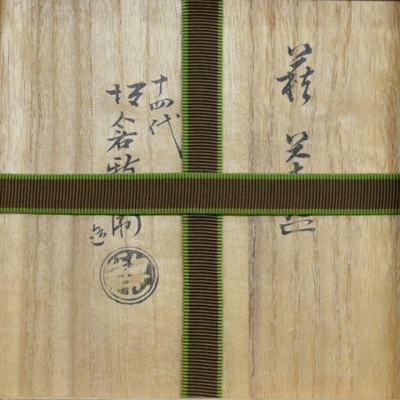 萩 茶盌
十四代
坂倉新兵衛 造